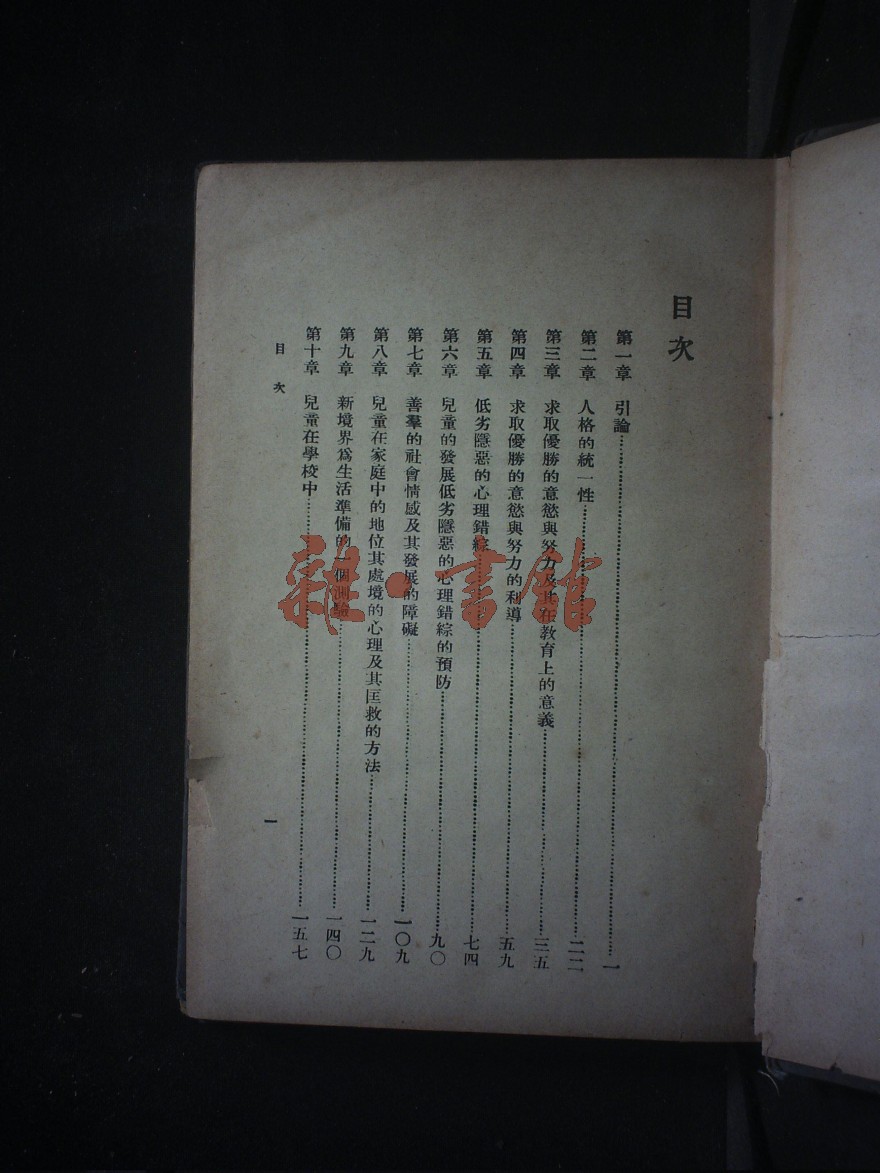 目次
第一章 引論……一
第二章 人格的統一性……二二
第三章 求取優勝的意慾與努力及其在教育上的意義……三五
第四章 求取優勝的意慾與努力的利導……五九
第五章 低劣隱惡的心理錯綜……七四
第六章 兒童的發展低劣隱惡的心理錯綜的預防……九〇
第七章 善羣的社會情感及其發展的障礙……一〇九
第八章 兒童在家庭中的地位其處境的心理及其匡救的方法……一二九
第九章 新境界爲生活準備的一個測驗……一四〇
第十章 兒童在學校中……一五七
目次
一
雜·書館